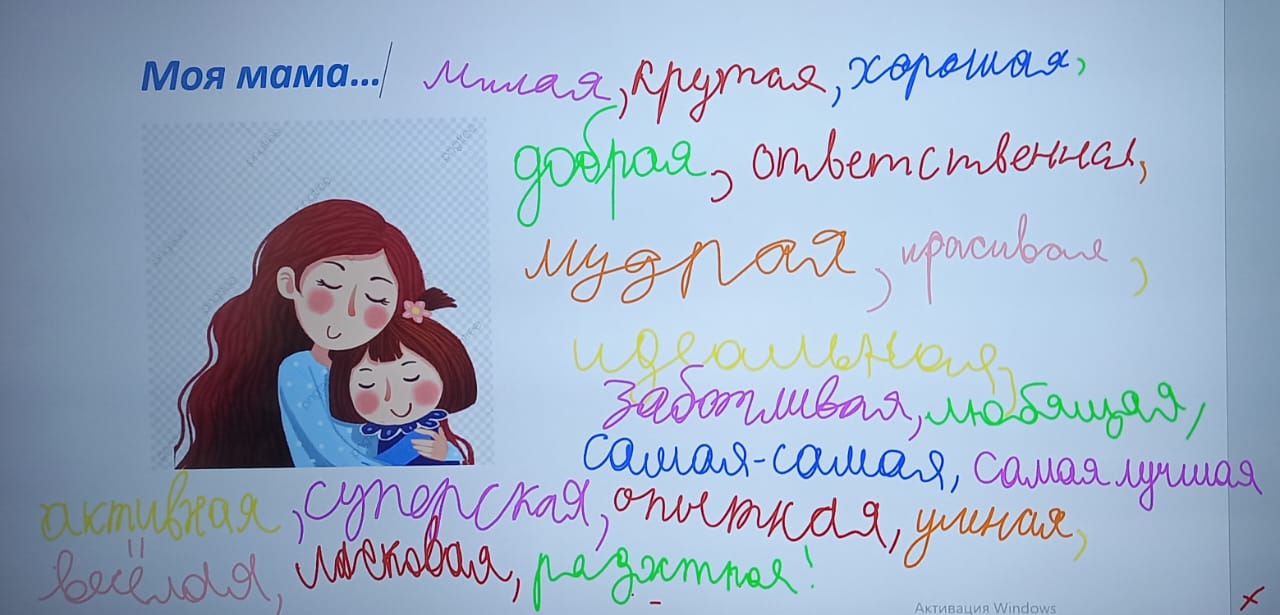 Моя мама... милая, крутая, хорошая,
добрая, ответственная,
мудрая, красивая,
идеальная,
заботливая, любящая,
самая-самая, самая лучшая
активная, суперская, опытная, умная,
весёлая, ласковая,
Активация Windows